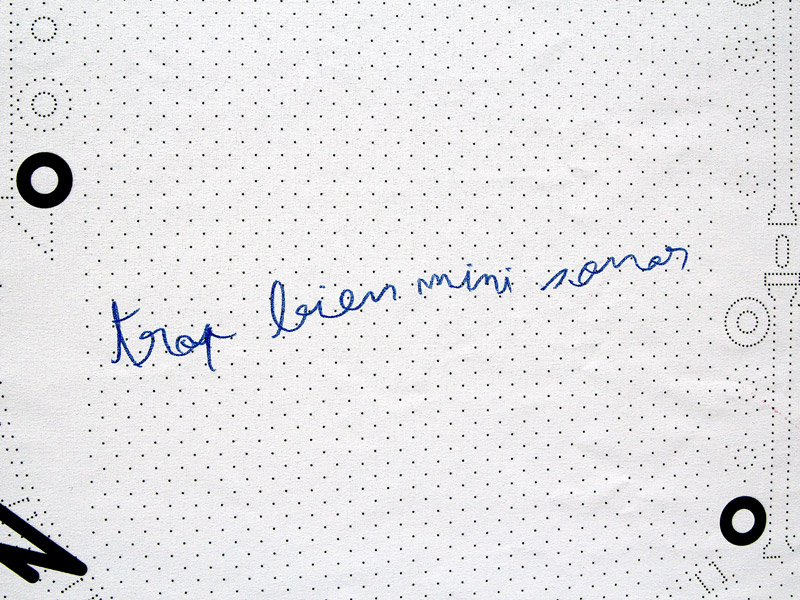 trop bien mini sonor